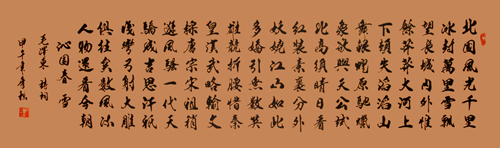 北国風光千里
冰封萬里雪飄
望長城内外惟
餘莽莽大河上
下頓失滔滔山
舞銀蛇原馳蠟
象欲與天公試
比高須晴日看
紅裝素裹分外
妖嬈江山如此
多嬌引無數英
雄競折腰惜秦
皇漢武略輸文
採唐宗宋祖稍
遜風騷一代天
驕成吉思汗祇
識彎弓射大雕
俱往矣數風流
人物還看今朝
沁園春 雪
毛澤東 詩詞
甲午年